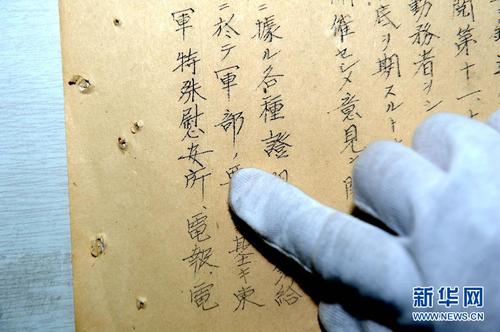 第十一
勤務者ヲシ
底ヲ期スルト
催セシメ意見
ニ據ル各種證 給
ニ於テ軍部ノ 基キ東
軍特殊慰安所、電報、電
新华网
WWW.NEWS.CN